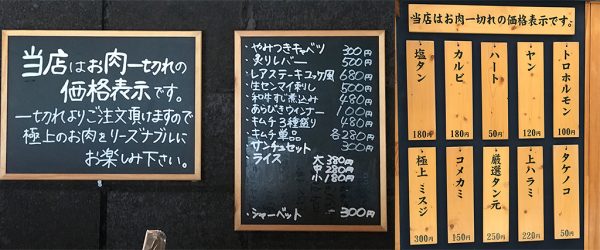 当店はお肉一切れの
価格表示です。
一切れよりご注文頂けますので
極上のお肉をリーズナブルに
お楽しみ下さい。
・やみつきキャベツ 300円
・炙りレバー 500円
・レアステーキユッケ風 680円
・生センマイ刺し 500円
・和牛すじ煮込み 480円
・あらびきウィンナー 100円
・キムチ3種盛り 480円
・キムチ単品 各280円
・サンチュセット 300円
・ライス 大380円
中280円
小180円
・シャーベット -300円
当店はお肉一切れの価格表示です。
トロホルモン 100円
ヤン 120円
ハート 50円
カルビ 180円
塩タン 180円
タケノコ 50円
上ハラミ 220円
厳選タン元 250円
コメカミ 150円
極上ミスジ 300円